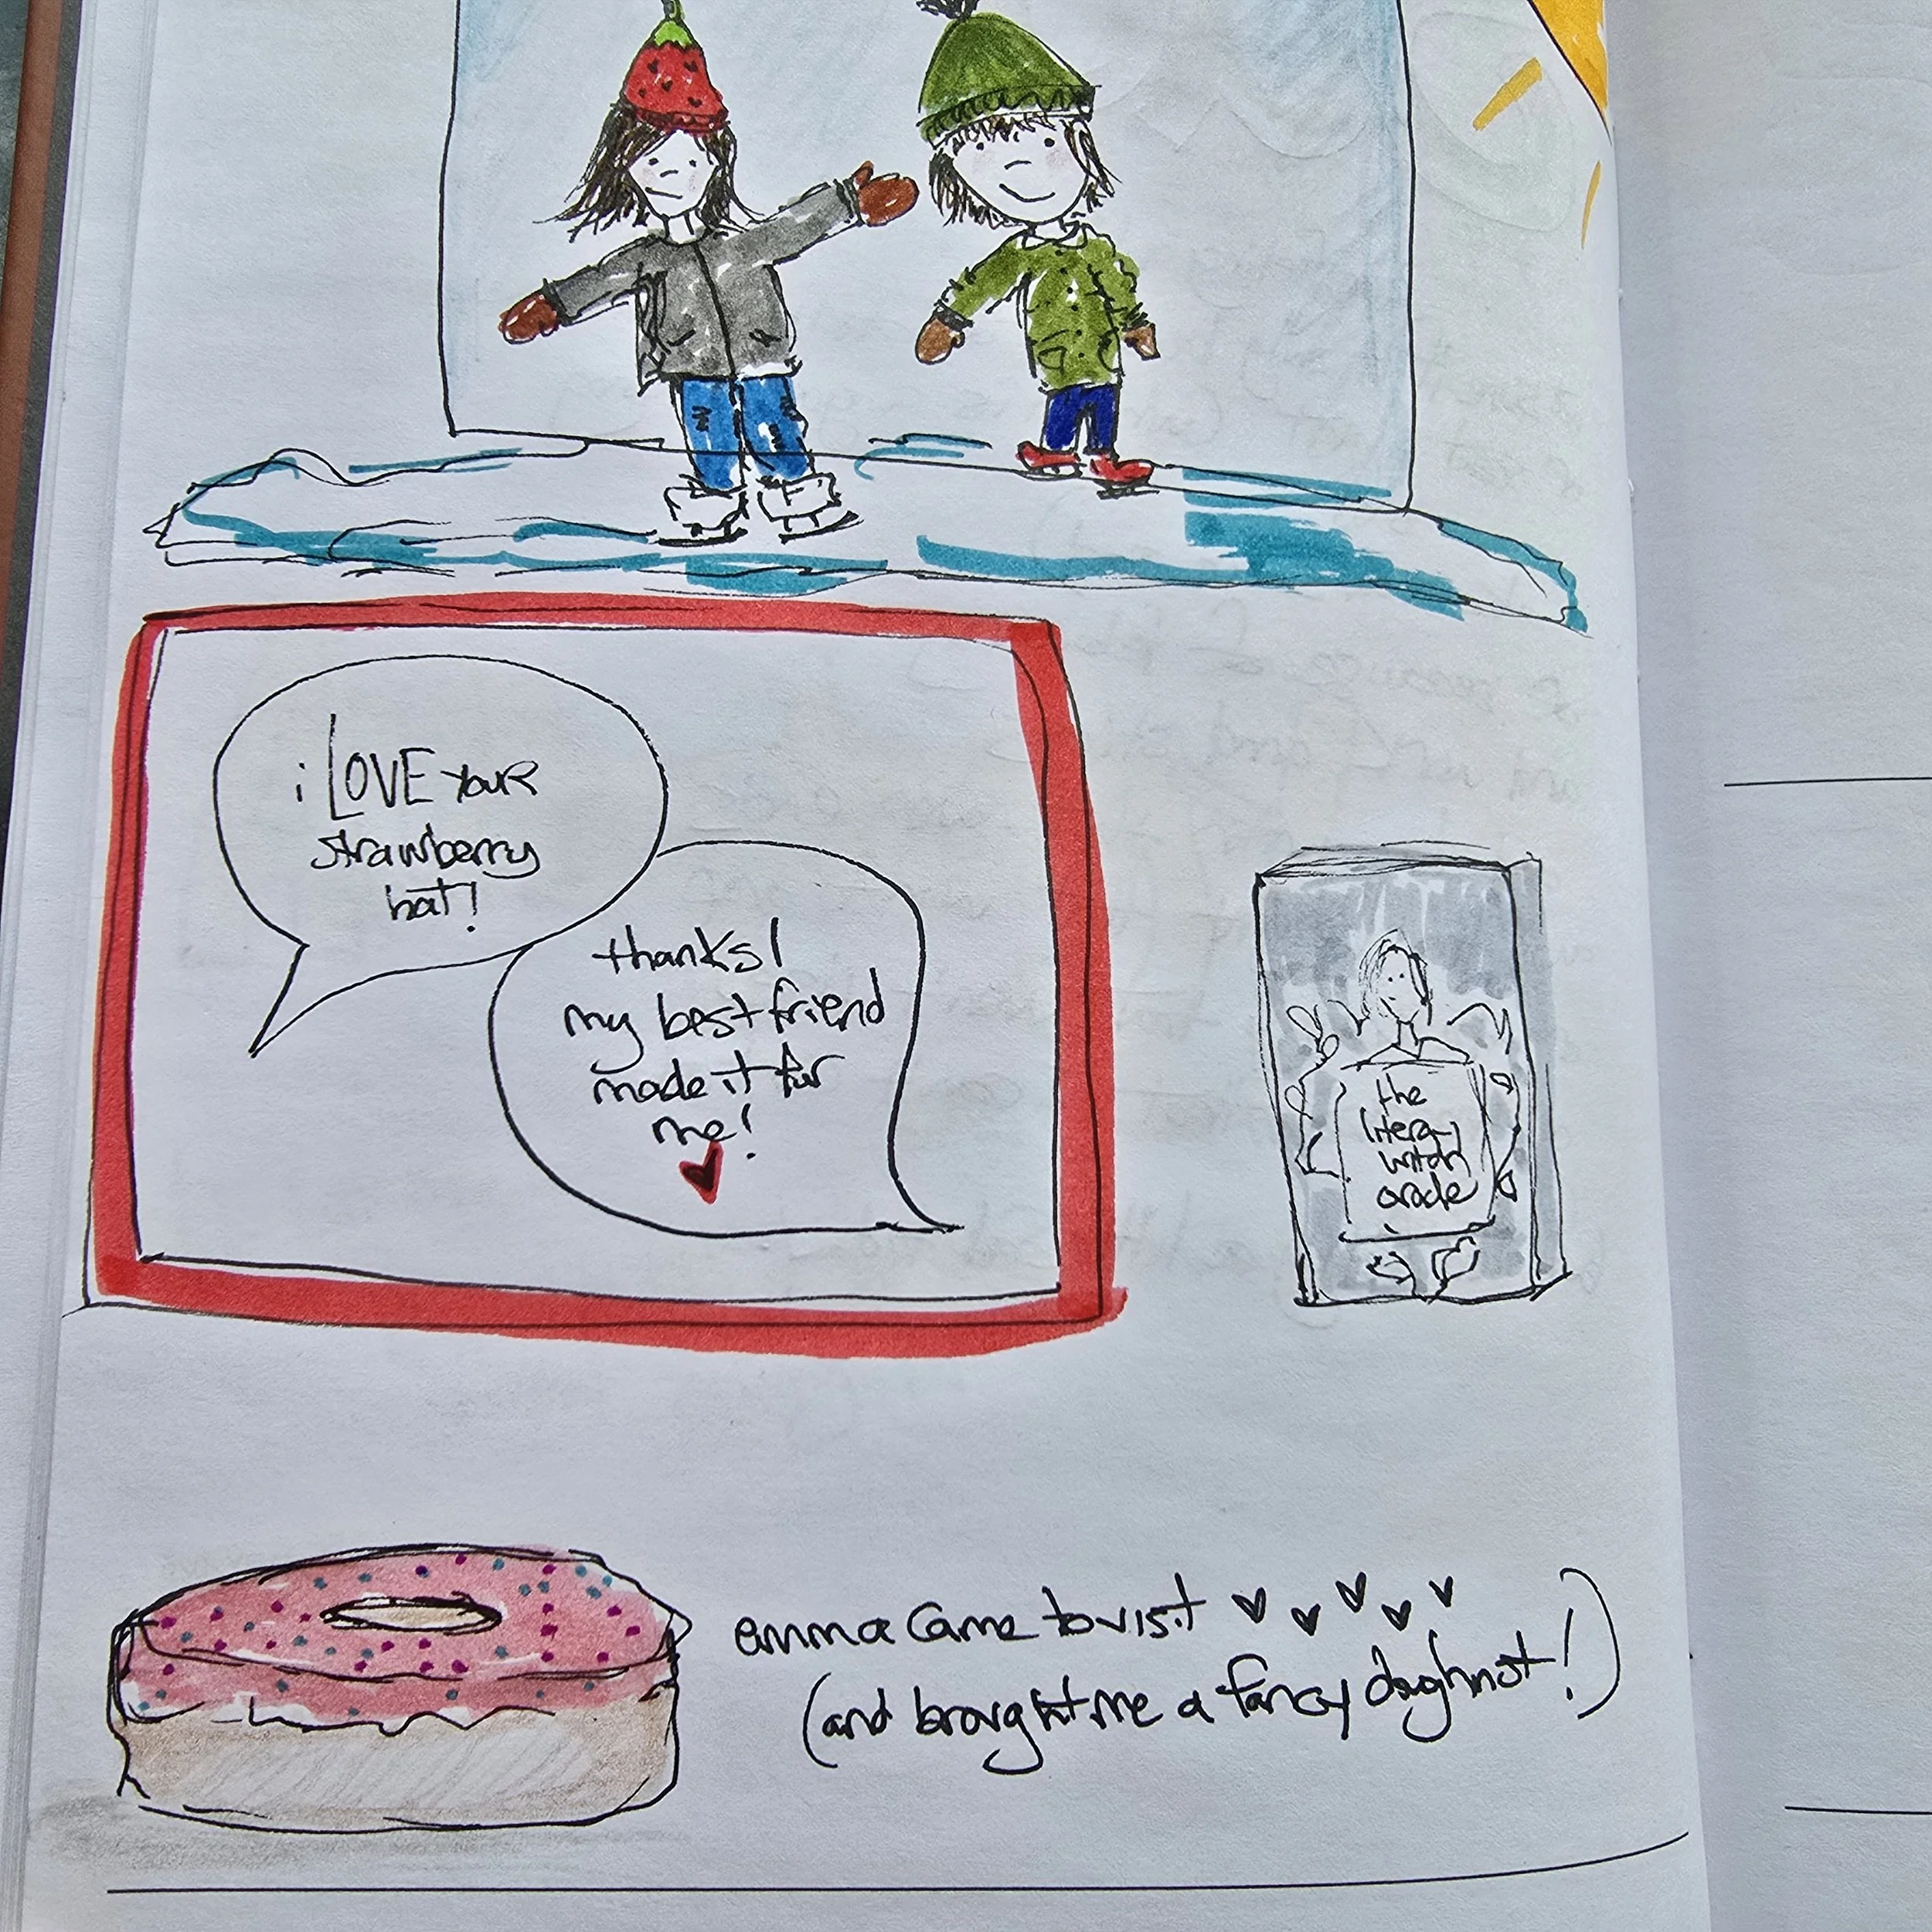 i LOVE YouR
strawberry
hat!
thanks!
my best friend
made it for
me!
the
literary
witch
oracle
emma came to visit
(and brought me a fancy doughnut!)